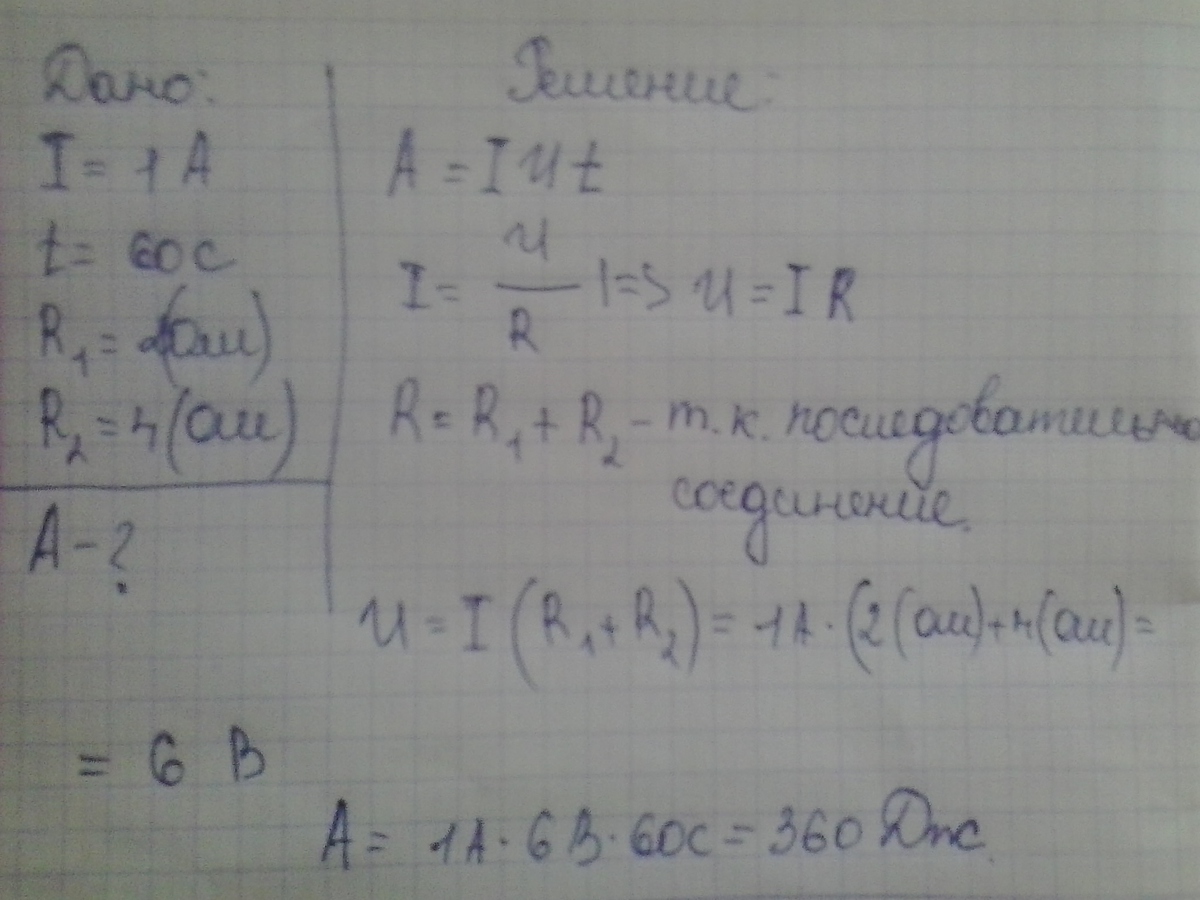 Дано:
I = 1 A
t = 60 c
R₁ = 2(Ом)
R₂ = 4(Ом)
A - ?
Решение:
A = I U t
I = U/R |=> U = I R
R = R₁ + R₂ - т.к. последовательно
соединение.
U = I (R₁ + R₂) = 1A · (2(Ом)+4(Ом) =
= 6 В
A = 1A · 6 В · 60с = 360 Дж.